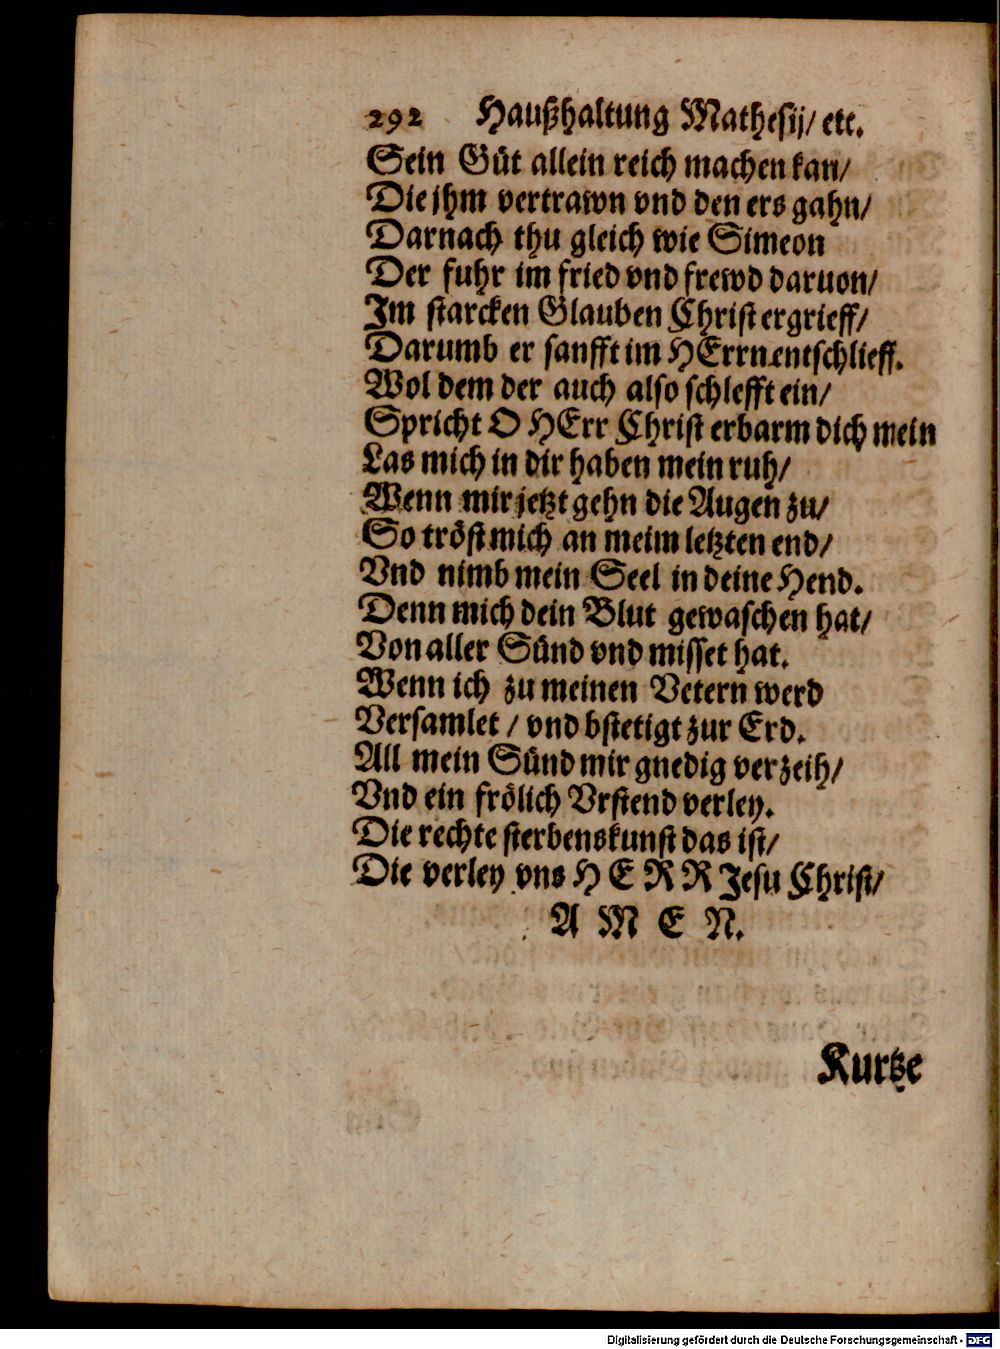 292 Haußhaltung Mathesij/ etc.
Sein Güt allein reich machen kan/
Die jhm vertrawn vnd den ers gahn/
Darnach thu gleich wie Simeon
Der fuhr im fried vnd frewd daruon/
Im starcken Glauben Christ ergrieff/
Darumb er sanfft im HErrn entschlieff.
Wol dem der auch also schlefft ein/
Spricht O HErr Christ erbarm dich mein
Las mich in dir haben mein ruh/
Wenn mir jetzt gehn die Augen zu/
So tröst mich an meim letzten end/
Vnd nimb mein Seel in deine Hend.
Denn mich dein Blut gewaschen hat/
Von aller Sünd vnd misset hat.
Wenn ich zu meinen Vetern werd
Versamlet / vnd bstetigt zur Erd.
All mein Sünd mir gnedig verzeih/
Vnd ein frölich Vrstend verley.
Die rechte sterbenskunst das ist/
Die verley vns HERR Jesu Christ/
AMEN.
Kurtze
Digitalisierung gefördert durch die Deutsche Forschungsgemeinschaft - DFG